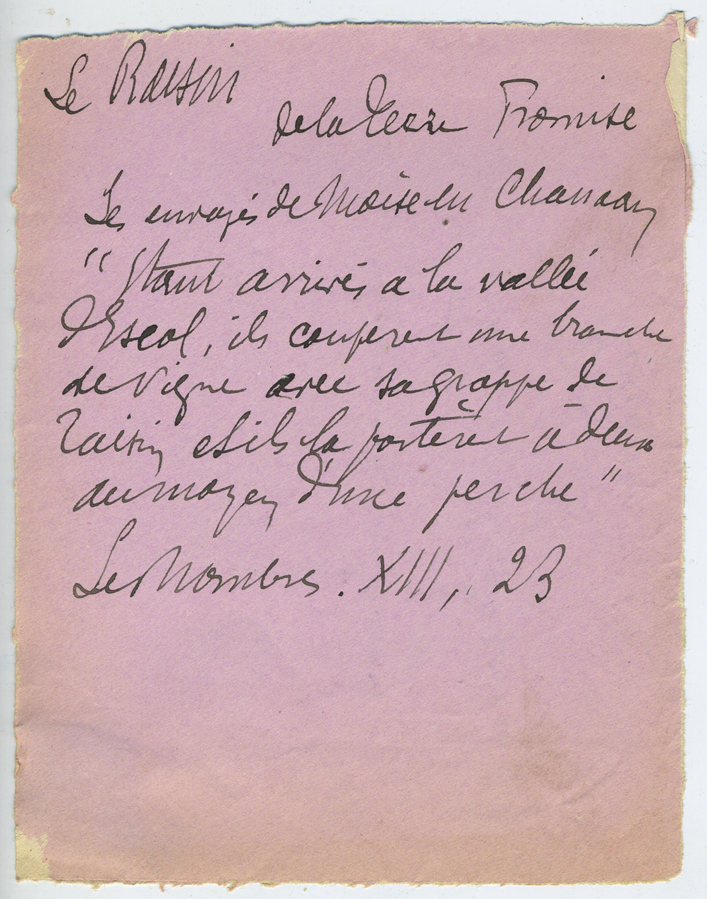 Le Raisin
de la Terre Promise
Les envoyés de Moïse en Chanaan
"Etant arrivés a la vallée
d'Escol, ils couperent une branche
de vigne avec sa grappe de
raisin et ils la portèrent à deux
au moyen d'une perche"
Les Nombres. XIII, 23